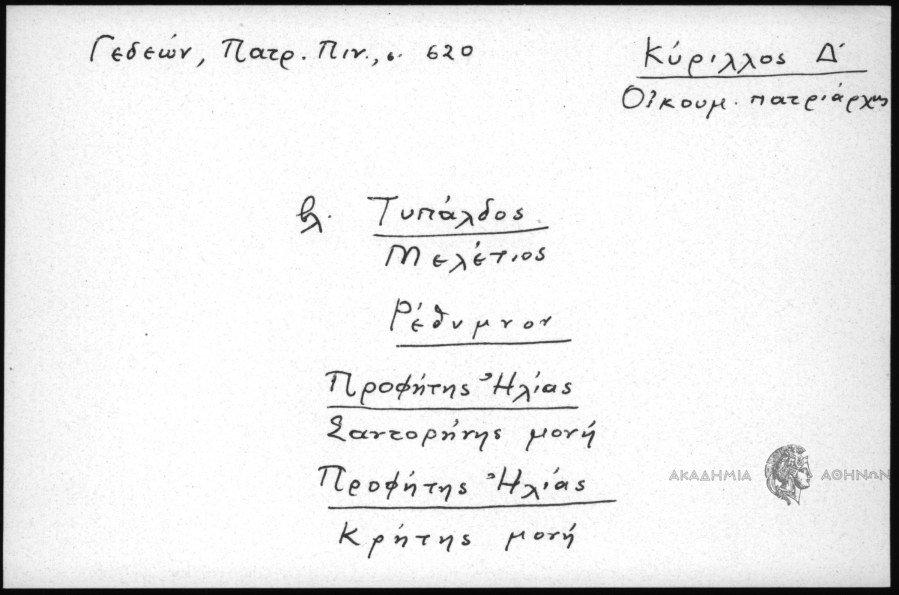 Γεδεών, Πατρ. Πιν., σ. 620
Κύριλλος Δ΄
Οἰκουμ. πατριάρχης
βλ. Τυπάλδος
Μελέτιος
Ρέθυμνον
Προφήτης Ἠλίας
Σαντορήνης μονή
Προφήτης Ἠλίας
Κρήτης μονή
ΑΚΑΔΗΜΙΑ ΑΘΗΝΩΝ